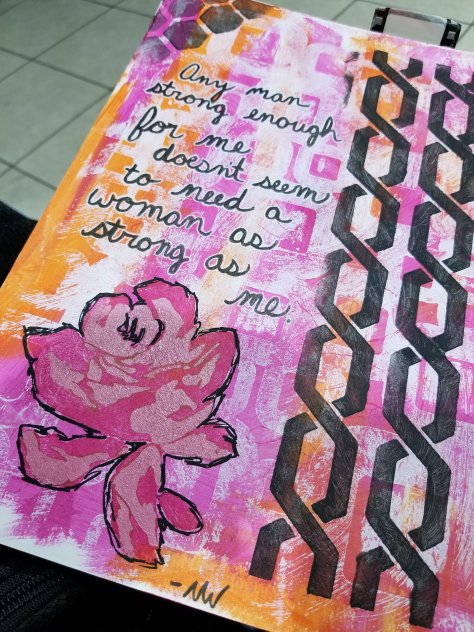 Any man
strong enough
for me
doesn't seem
to need a
woman as
strong as
me.
-NW